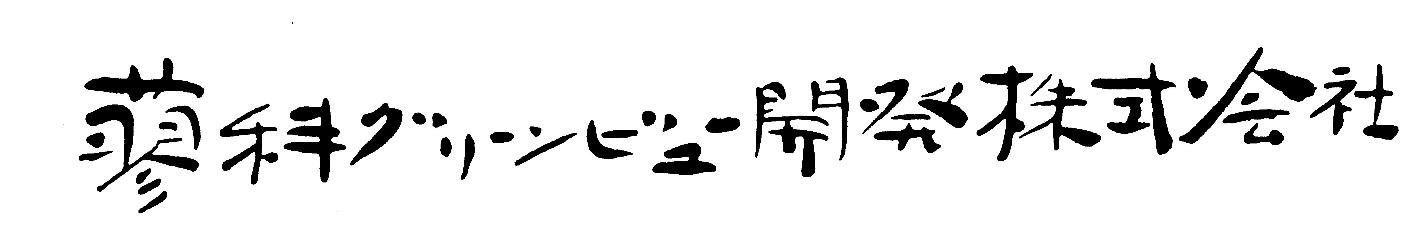 蓼科グリーンビュー開発株式会社